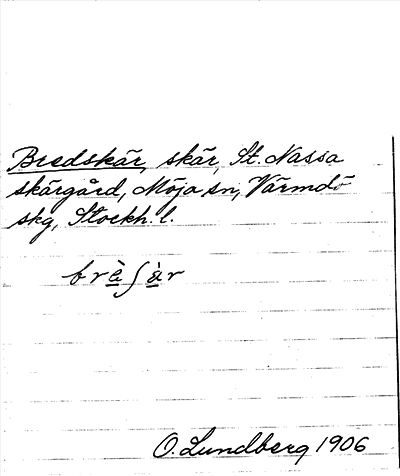 Bredskär, skär, St. Nassa
skärgård, Möja sn, Värmdö
skg, Stockh. l.
brè̲ʃà̲r
O. Lundberg 1906